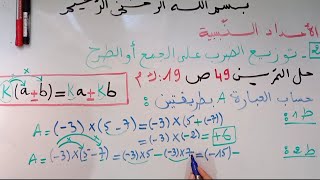 بسم الله الرحمن الرحيم
الأعداد النسبية
2 - توزيع الضرب على الجمع أو الطرح
K(a±b)=Ka±Kb
حل التمرين 49 ص 19 : ك م
حساب العبارة A بطريقتين :
ط1: A = (-3) × (5-7) = (-3) × (5 + (-7))
= (-3) × (-2) = +6
ط2: A = (-3) × (5-7) = (-3) × 5 - (-3) × 7 = (-15) -